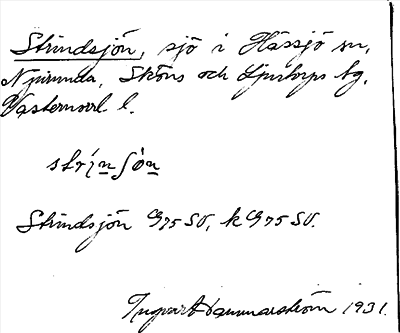 Strindsjön, sjö i Hässjö sn,
Njurunda, Sköns och Ljustorps tg,
Västernorrl. l.
strinʃön
Strindsjön G75 SV, k G75 SV.
Ingvart Hammarström 1931.